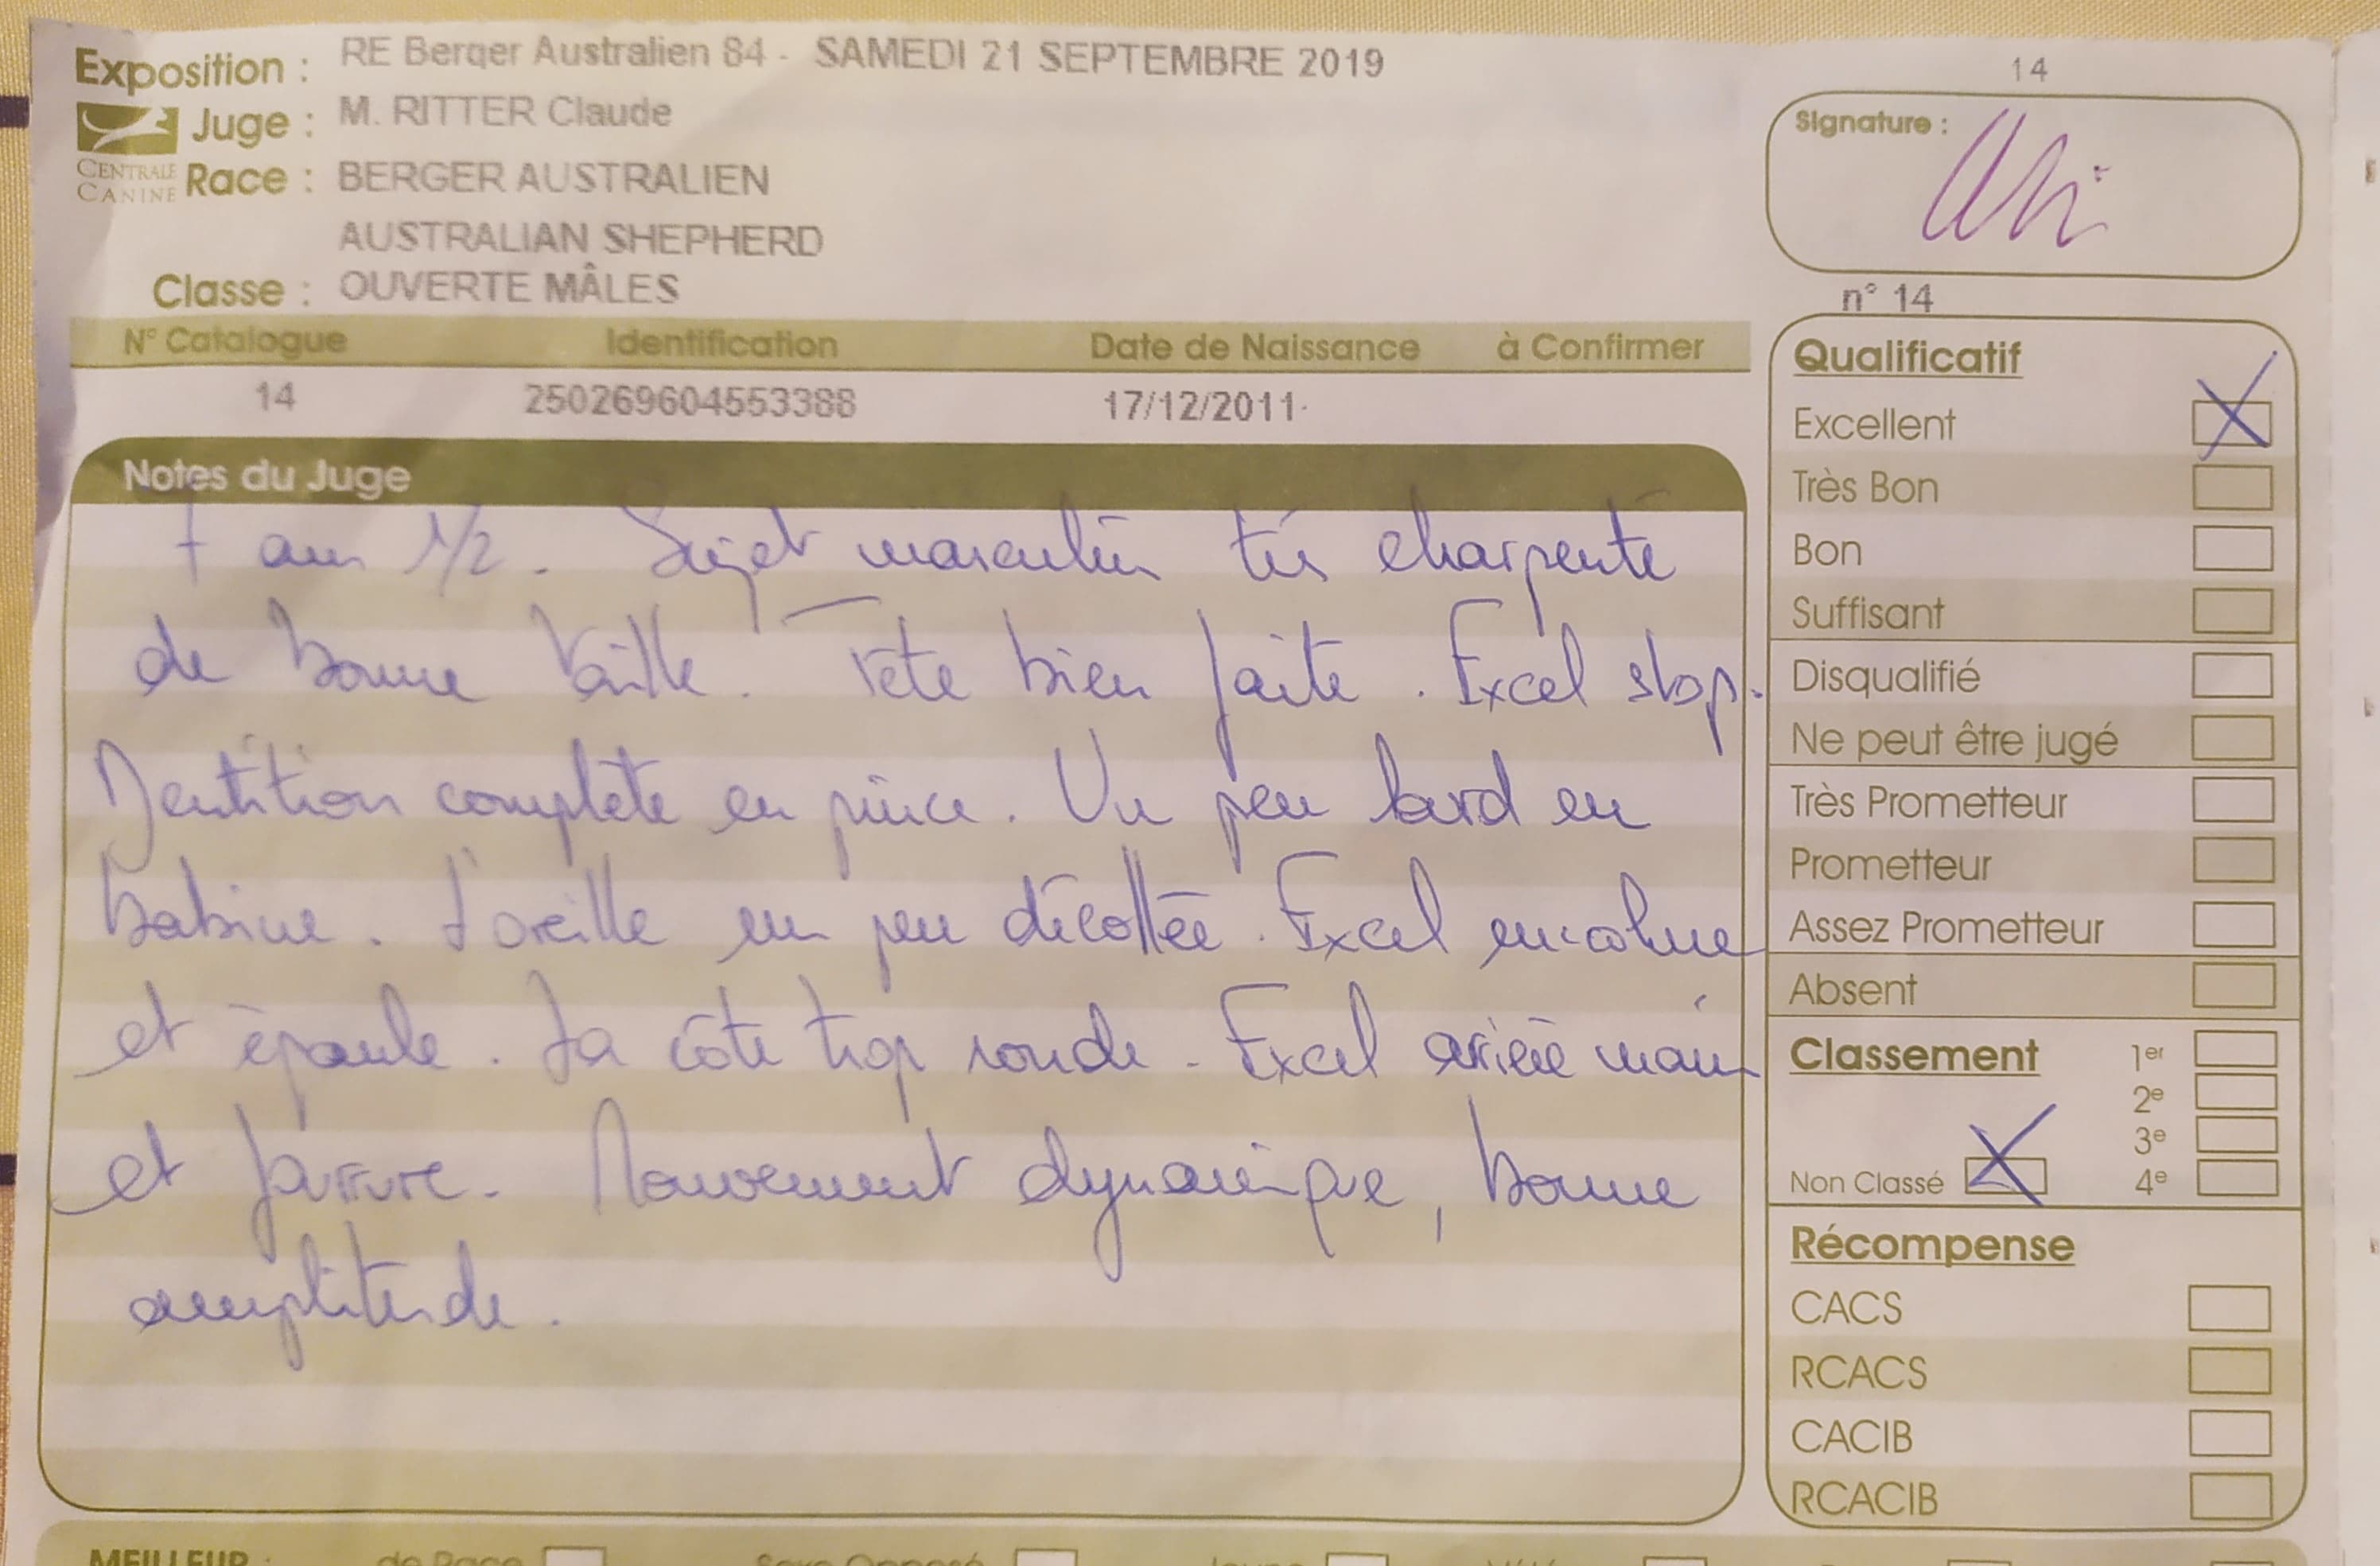 Exposition : RE Berger Australien 84 - SAMEDI 21 SEPTEMBRE 2019
Juge : M. RITTER Claude
CENTRALE CANINE
Race : BERGER AUSTRALIEN
AUSTRALIAN SHEPHERD
Classe : OUVERTE MÂLES
N° Catalogue Identification Date de Naissance à Confirmer
14 250269604553388 17/12/2011
Notes du Juge
7 ans 1/2. Sujet masculin très charpenté
de bonne taille. Tête bien faite. Excel stop.
Dentition complète en pince. Un peu lourd en
babine. L'oreille un peu décollée. Excel encolure
et épaule. La côte trop ronde - Excel arrière main
et fourrure. Mouvement dynamique, bonne
amplitude.
14
Signature :
n° 14
Qualificatif
Excellent
Très Bon
Bon
Suffisant
Disqualifié
Ne peut être jugé
Très Prometteur
Prometteur
Assez Prometteur
Absent
Classement 1er
2e
3e
Non Classé 4e
Récompense
CACS
RCACS
CACIB
RCACIB
MEILLEUR : de Race Sexe Opposé Jeune